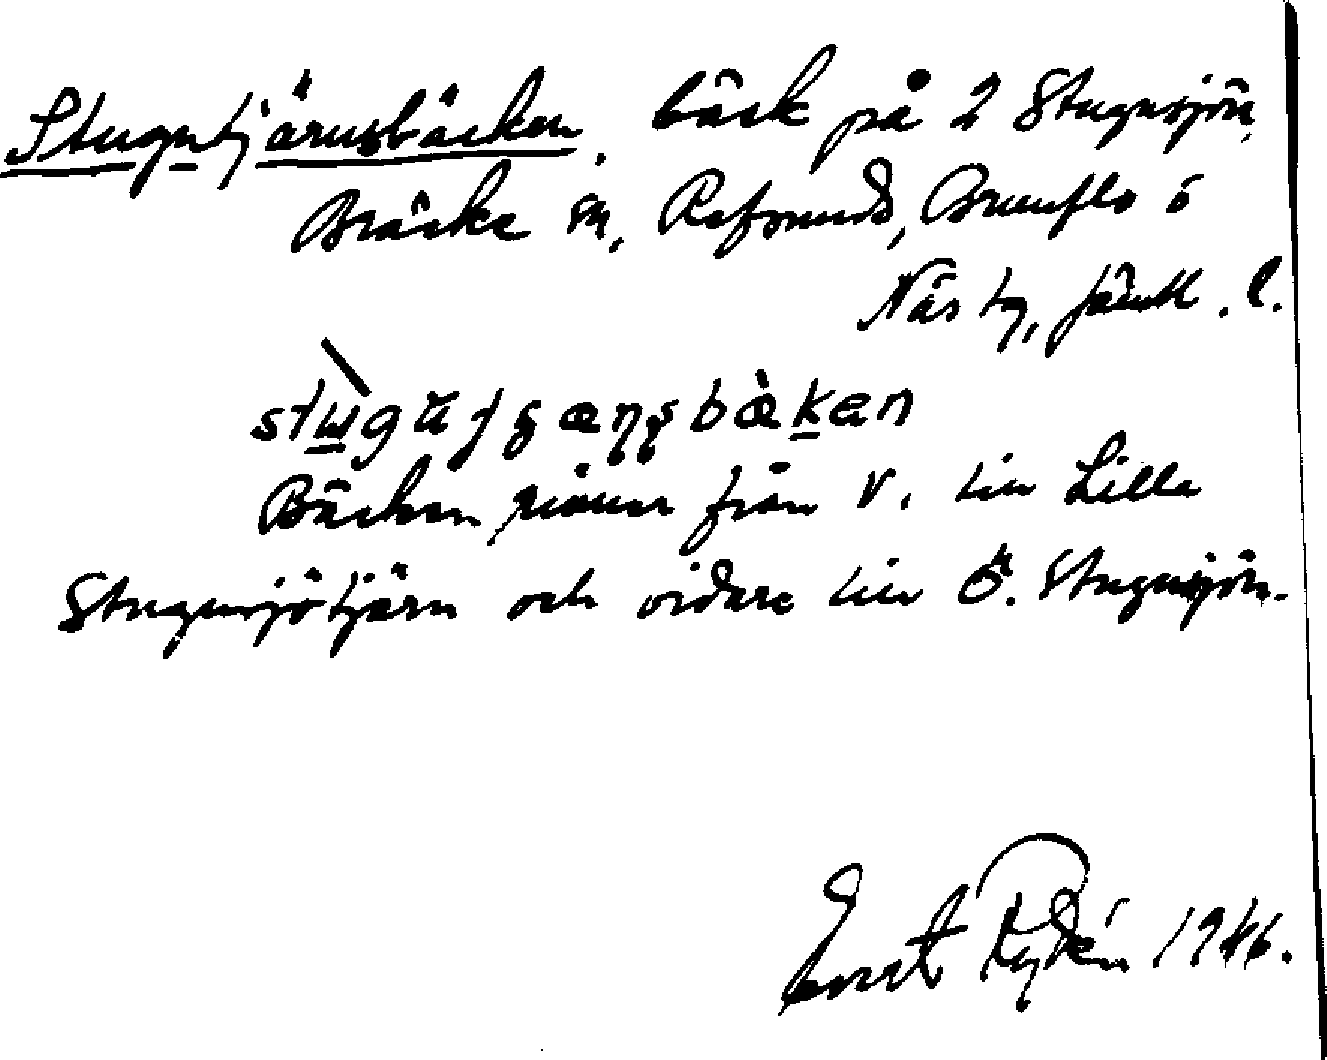 Stugutjärnsbäcken, bäck på 2 Stugusjön,
Bräcke sn, Refsunds, Brunflo o
Näs tg, Jämtl. l.
Bäcken rinner från V. till Lilla
Stugusjötjärn och vidare till Ö. Stugusjön.
Ernst Rydén 1946.